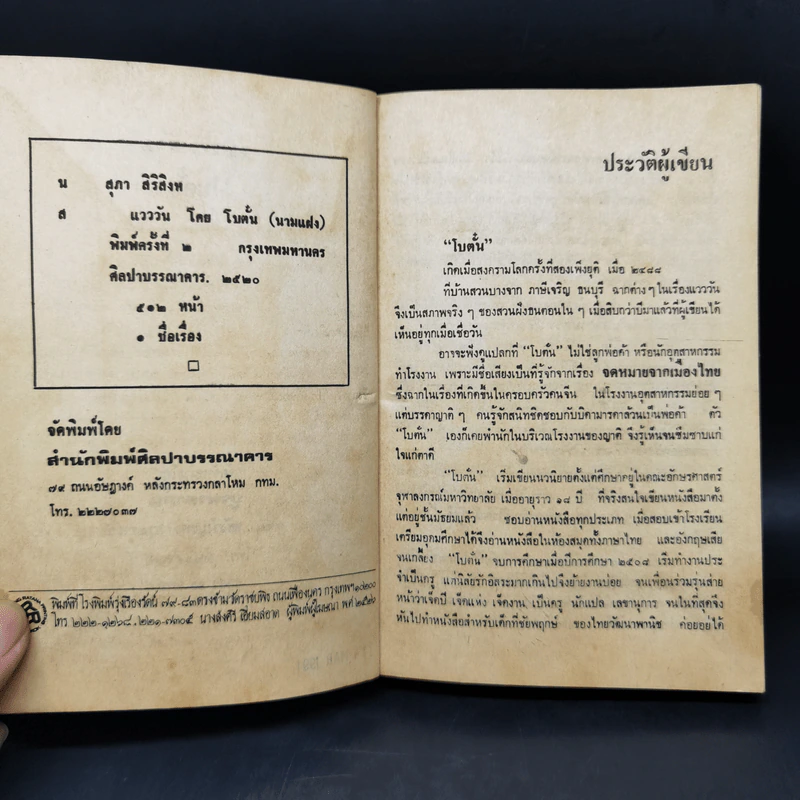 น สุภา สิริสิงห
ส แวววัน โดย โบตั๋น (นามแฝง)
พิมพ์ครั้งที่ ๒ กรุงเทพมหานคร
ศิลปาบรรณาคาร. ๒๕๒๐
๕๑๒ หน้า
๑ ชื่อเรื่อง
จัดพิมพ์โดย
สำนักพิมพ์ศิลปาบรรณาคาร
๗๙ ถนนอัษฎางค์ หลังกระทรวงกลาโหม กทม.
โทร. ๒๒๒๗๐๓๗
พิมพ์ที่ โรงพิมพ์รุ่งเรืองรัตน์ ๗๙-๘๓ ตรงข้ามวัดราชบพิธ ถนนเฟื่องนคร กรุงเทพฯ ๑๐๒๐๐
โทร ๒๒๒-๑๒๖๘. ๒๒๑-๗๓๐๕ ผู้พิมพ์ผู้โฆษณา พ.ศ ๒๕๒๐
ประวัติผู้เขียน
“โบตั๋น”
เกิดเมื่อสงครามโลกครั้งที่สองเพิ่งยุติ เมื่อ ๒๔๘๘
ที่บ้านสวนบางจาก ภาษีเจริญ ธนบุรี ฉากต่าง ๆ ในเรื่องแวววัน
จึงเป็นสภาพจริง ๆ ของสวนฝั่งธนตอนใน ๆ เมื่อสิบกว่าปีมาแล้วที่ผู้เขียนได้
เห็นอยู่ทุกเมื่อเชื่อวัน
อาจจะฟังดูแปลกที่ “โบตั๋น” ไม่ใช่ลูกพ่อค้า หรือนักอุตสาหกรรม
ทำโรงงาน เพราะมีชื่อเสียงเป็นที่รู้จักจากเรื่อง จดหมายจากเมืองไทย
ซึ่งฉากในเรื่องที่เกิดขึ้นในครอบครัวคนจีน ในโรงงานอุตสาหกรรมย่อย ๆ
แต่บรรดาญาติ ๆ คนรู้จักสนิทชิดชอบกับบิดามารดาล้วนเป็นพ่อค้า ตัว
“โบตั๋น” เองก็เคยพำนักในบริเวณโรงงานของญาติ จึงรู้เห็นจนซึมซาบแก่
ใจแก่ตาดี
“โบตั๋น” เริ่มเขียนนวนิยายตั้งแต่ศึกษาอยู่ในคณะอักษรศาสตร์
จุฬาลงกรณ์มหาวิทยาลัย เมื่ออายุราว ๑๘ ปี ที่จริงสนใจเขียนหนังสือมาตั้ง
แต่อยู่ชั้นมัธยมแล้ว ชอบอ่านหนังสือทุกประเภท เมื่อสอบเข้าโรงเรียน
เตรียมอุดมศึกษาได้จึงอ่านหนังสือในห้องสมุดทั้งภาษาไทย และอังกฤษเสีย
จนเกลี้ยง “โบตั๋น” จบการศึกษาเมื่อปีการศึกษา ๒๕๐๘ เริ่มทำงานประ
จำเป็นครู แต่นิสัยรักอิสระมากเกินไปจึงย้ายงานบ่อย จนเพื่อนร่วมรุ่นส่าย
หน้าว่าเจ็ดปี เจ็ดแห่ง เจ็ดงาน เป็นครู นักแปล เลขานุการ จนในที่สุดจึง
หันไปทำหนังสือสำหรับเด็กที่ชัยพฤกษ์ ของไทยวัฒนาพานิช ค่อยอยู่ได้